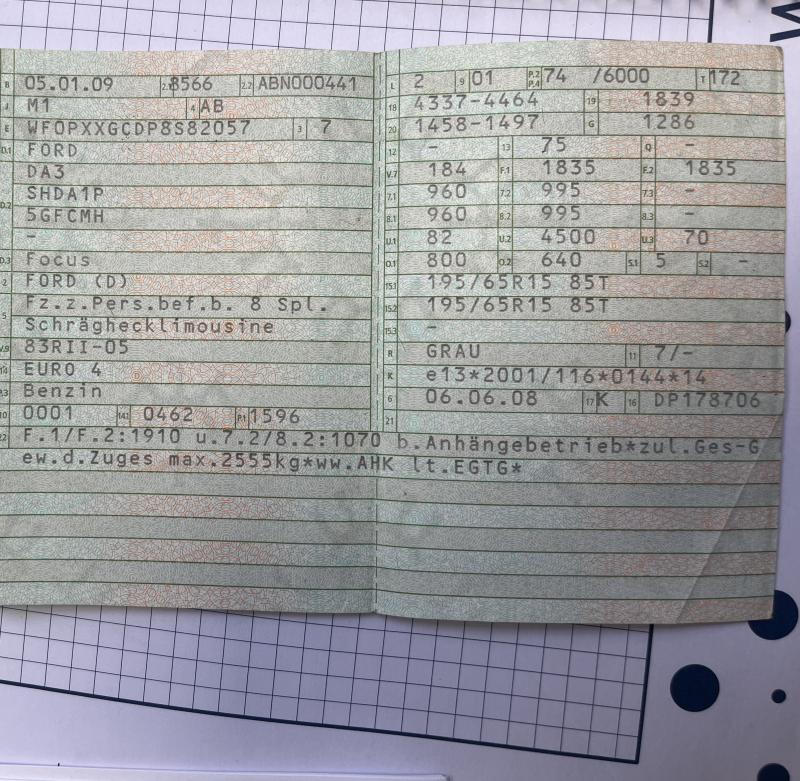 B 05.01.09 2.1 8566 2.2 ABN000441
J M1 4 AB
E WF0PXXGCDP8S82057 3 7
D.1 FORD
DA3
D.2 SHDA1P
5GFCMH
-
D.3 Focus
2 FORD (D)
5 Fz.z.Pers.bef.b. 8 Spl.
Schräghecklimousine
V.9 83RII-05
14 EURO 4
P.3 Benzin
10 0001 14.1 0462 P.1 1596
L 2 9 01 P.2 P.4 74 /6000 T 172
18 4337-4464 19 1839
20 1458-1497 G 1286
12 - 13 75 Q -
V.7 184 F.1 1835 F.2 1835
7.1 960 7.2 995 7.3 -
8.1 960 8.2 995 8.3 -
U.1 82 U.2 4500 U.3 70
O.1 800 O.2 640 S.1 5 S.2 -
15.1 195/65R15 85T
15.2 195/65R15 85T
15.3 -
R GRAU 11 7/-
K e13*2001/116*0144*14
6 06.06.08 17 K 16 DP178706
21
22 F.1/F.2:1910 u.7.2/8.2:1070 b.Anhängebetrieb*zul.Ges-G
ew.d.Zuges max.2555kg*ww.AHK lt.EGTG*